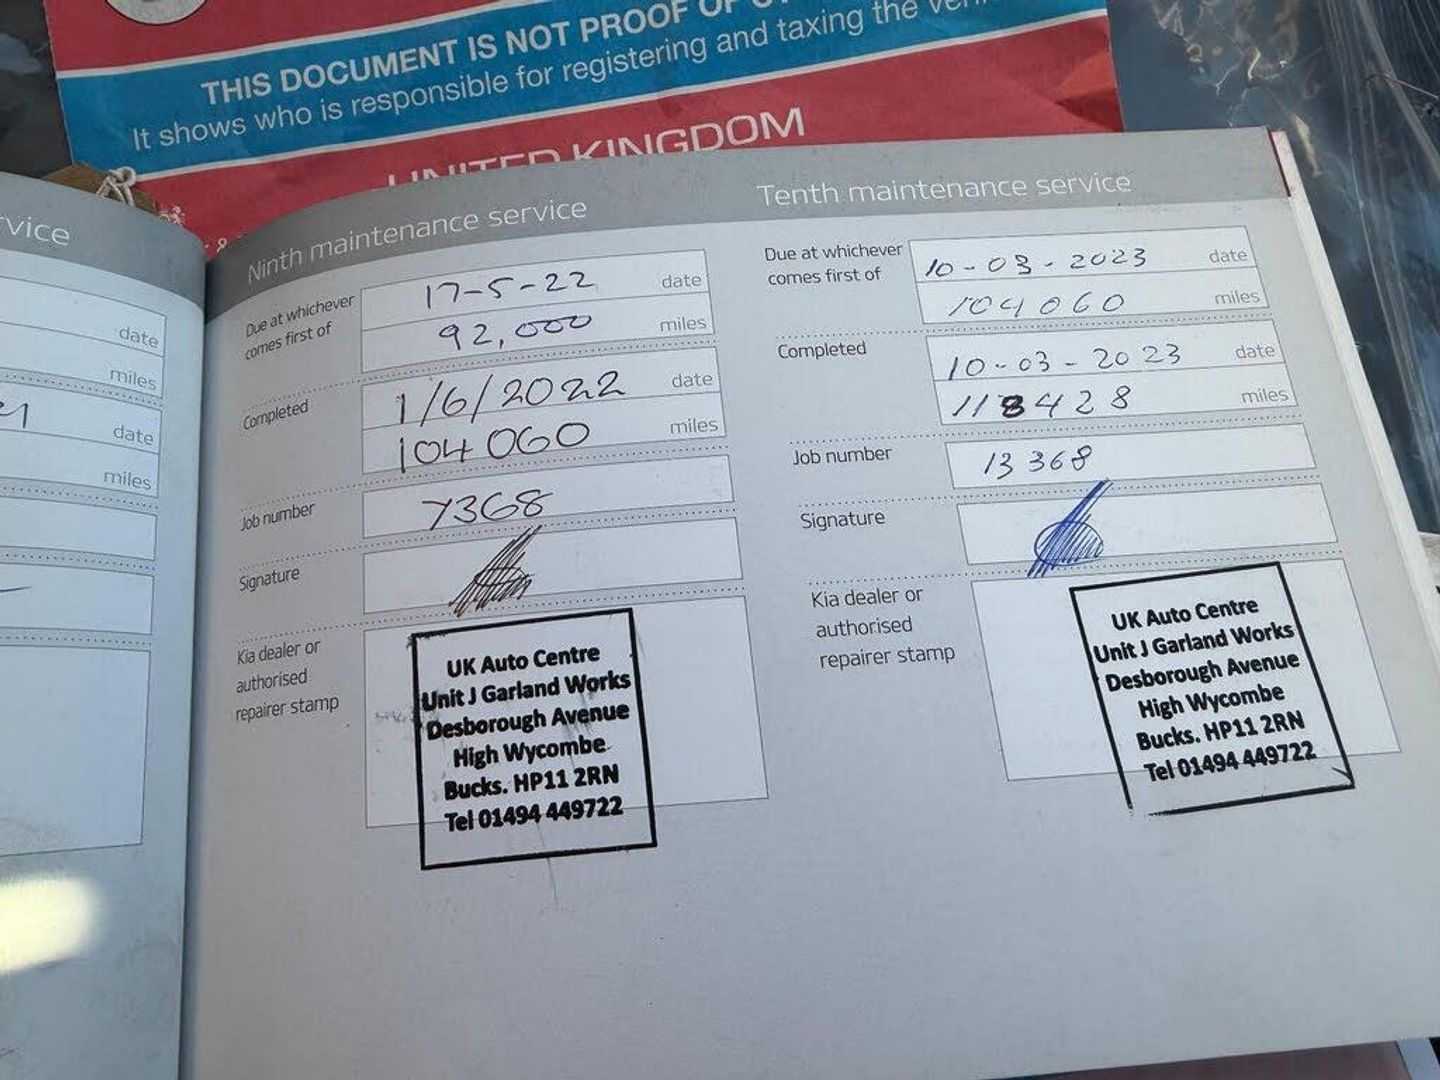 THIS DOCUMENT IS NOT PROOF OF
It shows who is responsible for registering and taxing the
UNITED KINGDOM
Ninth maintenance service
Due at whichever
comes first of
17-5-22 date
92,000 miles
Completed
1/6/2022 date
104 060 miles
Job number
7368
Signature
Kia dealer or
authorised
repairer stamp
UK Auto Centre
Unit J Garland Works
Desborough Avenue
High Wycombe
Bucks. HP11 2RN
Tel 01494 449722
Tenth maintenance service
Due at whichever
comes first of
10-03-2023 date
104060 miles
Completed
10-03-2023 date
118428 miles
Job number
13368
Signature
Kia dealer or
authorised
repairer stamp
UK Auto Centre
Unit J Garland Works
Desborough Avenue
High Wycombe
Bucks. HP11 2RN
Tel 01494 449722
date
miles
date
miles